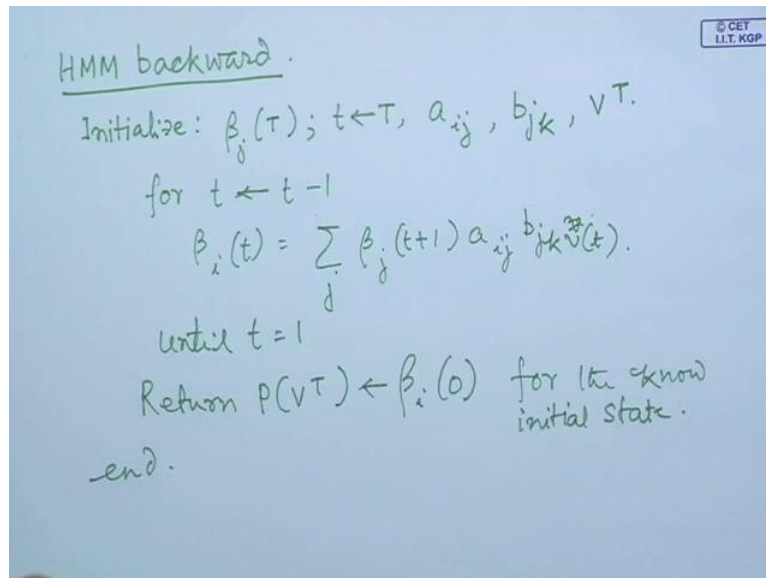 © CET
I.I.T. KGP
HMM backward.
Initialize: β_j(T); t←T, a_ij, b_jk, V^T.
for t ← t -1
β_i(t) = Σ_j β_j(t+1) a_ij b_jk v(t).
until t = 1
Return P(V^T) ← β_i(0) for the know
initial state.
end.